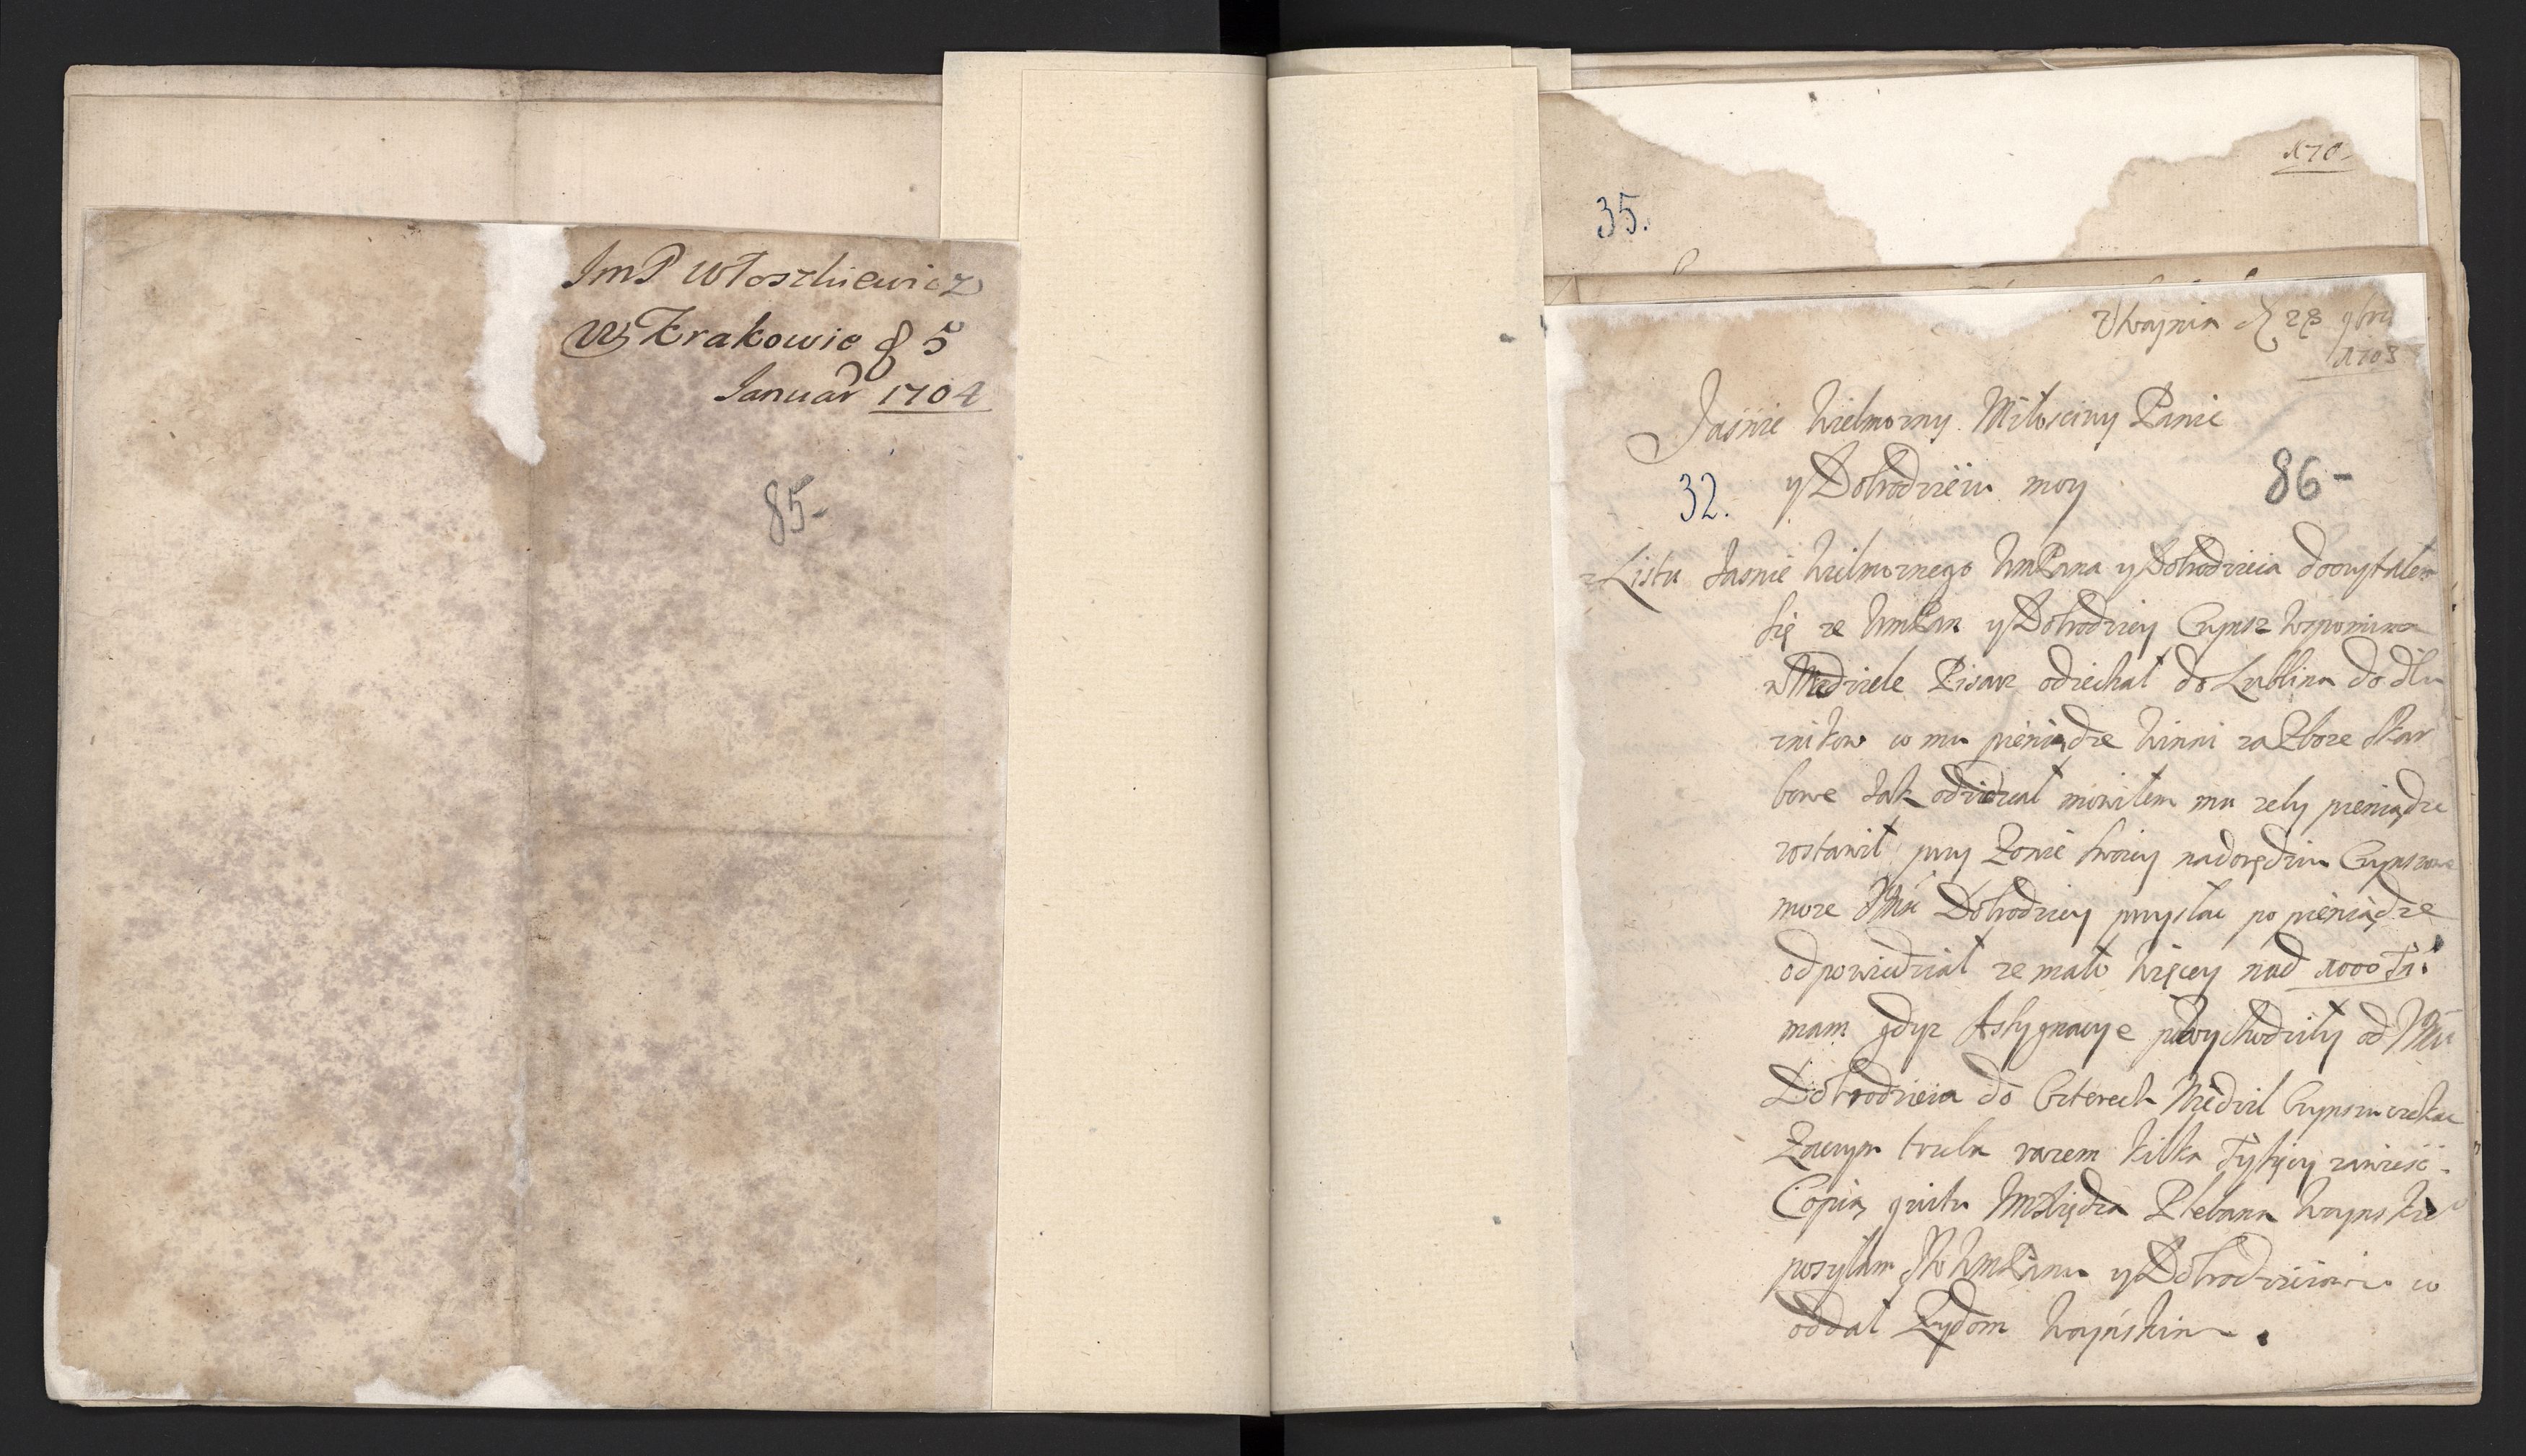 ImP Włoszkiewicz
W Krakowie d 5
Januar 1704
85-
170
35.
d 28 9bris
1703
Jaśnie Wielmozny Miłosciwy Panie
y Dobrodzieiu moy
32.
86-
z Listu Jasnie Wielmoznego WmPana y Dobrodzieia doczytałem
się ze WmPan y Dobrodziey Czynsz wspomina
w Niedziele Pisarz odiechał do Lublina do dłu
znikow co mu pieniądze winni za Zboze skar
bowe Jak mowiłem mu zeby pieniądze
zostawił przy Zonie swoiey nadorędziu Czynszowe
moze Dobrodziey przysłac po pieniądze
odpowiedział ze mało więcey nad 1000 Ta:
mam gdyz Assygnacye powychodziły od
Dobrodzieia do Czterech Niedziel Czynszu czekac
Zaczym trzeba razem kilka Tysięcy zawiesć.
Copią quitu ImXiędza Plebana
posyłam WmPanu y Dobrodzieiowi co
oddał Zydom